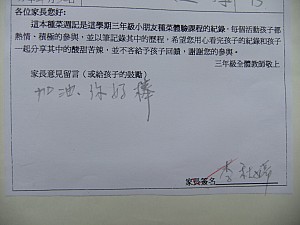 各位家長您好:
這本種菜週記是這學期三年級小朋友種菜體驗課程的紀錄,每個活動孩子都
熱情、積極的參與,並以筆記錄其中的歷程,希望您用心看完孩子的紀錄和孩子
一起分享其中的酸甜苦辣,並不客給予孩子回饋,謝謝您的參與。
三年級全體教師敬上
家長意見留言(或給孩子的鼓勵)
加油.你好棒
家長簽名